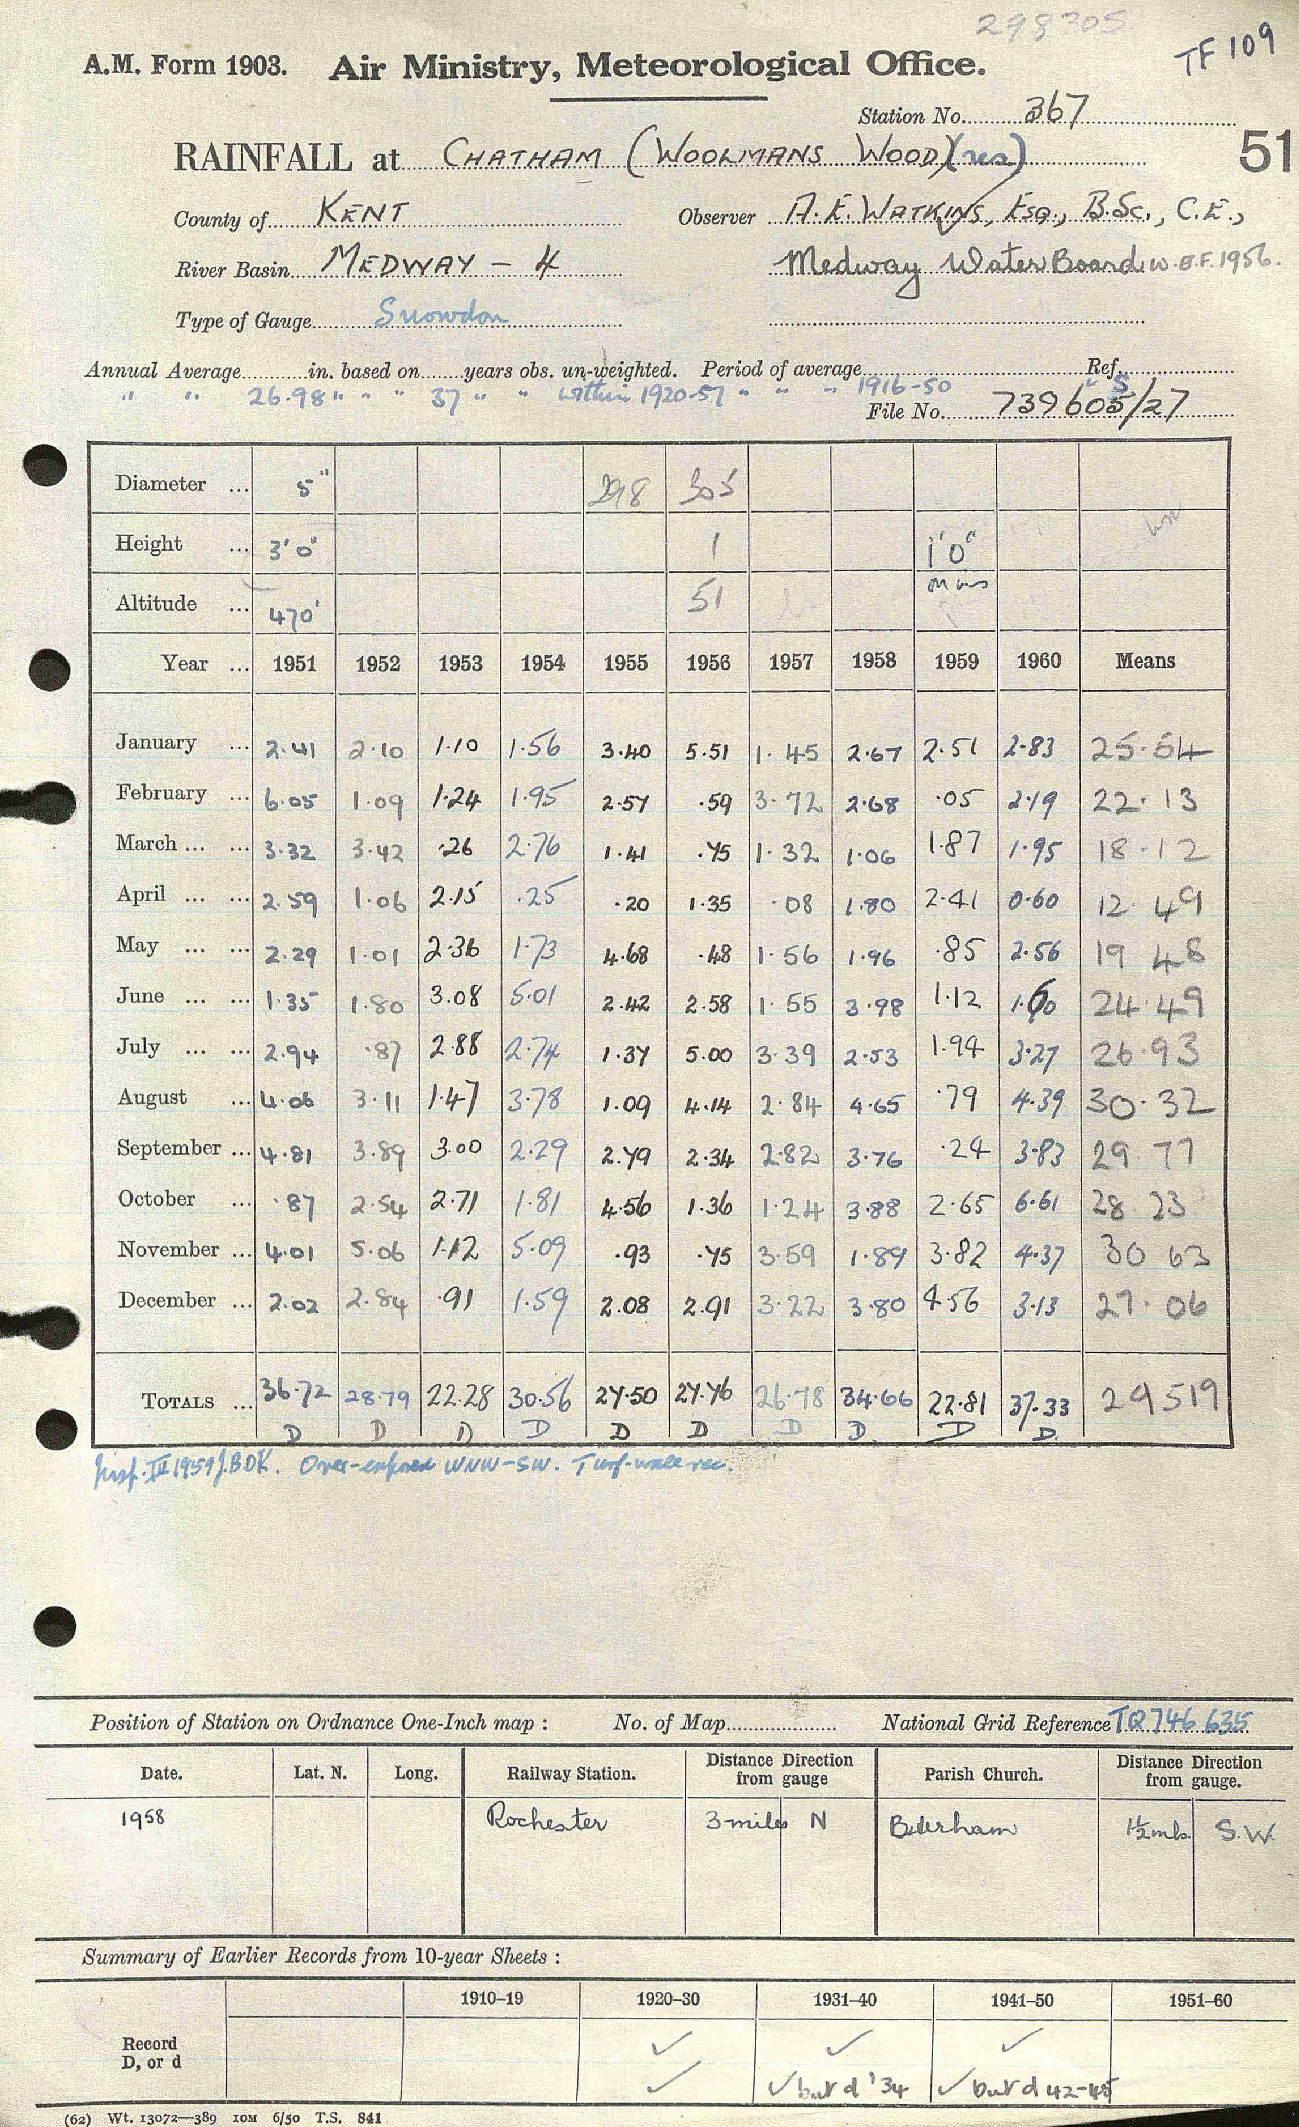 298305
TF 109
A.M. Form 1903. Air Ministry, Meteorological Office.
Station No. 367
51
RAINFALL at CHATHAM (WOOLMANS WOOD) (res)
County of KENT Observer A.E. WATKINS, ESQ., B.Sc., C.E.,
River Basin MEDWAY - 4 Medway Water Board. W.E.F. 1956.
Type of Gauge Snowdon
Annual Average in. based on years obs. un-weighted. Period of average Ref.
" " 26.98 " " " 37 " " within 1920-57 " " " 1916-50 " S
File No. 739605/27
Diameter ... 5" 298 305
Height ... 3'0" 1 1'0"
Altitude ... 470' 51
Year ... 1951 1952 1953 1954 1955 1956 1957 1958 1959 1960 Means
January ... 2.41 2.10 1.10 1.56 3.40 5.51 1.45 2.67 2.51 2.83 25.54
February ... 6.05 1.09 1.24 1.95 2.57 .59 3.72 2.68 .05 2.19 22.13
March ... ... 3.32 3.42 .26 2.76 1.41 .75 1.32 1.06 1.87 1.95 18.12
April ... ... 2.59 1.06 2.15 .25 .20 1.35 .08 1.80 2.41 0.60 12.49
May ... ... 2.29 1.01 2.36 1.73 4.68 .48 1.56 1.96 .85 2.56 19 48
June ... ... 1.35 1.80 3.08 5.01 2.42 2.58 1.55 3.98 1.12 1.60 24.49
July ... ... 2.94 .87 2.88 2.74 1.37 5.00 3.39 2.53 1.94 3.27 26.93
August ... 4.06 3.11 1.47 3.78 1.09 4.14 2.84 4.65 .79 4.39 30.32
September ... 4.81 3.89 3.00 2.29 2.79 2.34 2.82 3.76 .24 3.83 29.77
October ... .87 2.54 2.71 1.81 4.56 1.36 1.24 3.88 2.65 6.61 28.23
November ... 4.01 5.06 1.12 5.09 .93 .75 3.59 1.89 3.82 4.37 30 63
December ... 2.02 2.84 .91 1.59 2.08 2.91 3.22 3.80 4.56 3.13 27.06
TOTALS ... 36.72 28.79 22.28 30.56 27.50 27.76 26.78 34.66 22.81 37.33 29519
D D D D D D D D. D D.
Insp. III 1959 J.BDK. Over-exposed WNW-SW. Turf-wall rec.
Position of Station on Ordnance One-Inch map : No. of Map National Grid Reference TQ 746 635
Date. Lat. N. Long. Railway Station. Distance Direction from gauge Parish Church. Distance Direction from gauge.
1958 Rochester 3 miles N 1½ mls. S.W.
Summary of Earlier Records from 10-year Sheets :
1910–19 1920–30 1931–40 1941–50 1951–60
Record ✓ ✓ ✓
D, or d ✓ ✓ but d '34 ✓ but d 42-45
(62) Wt. 13072—389 10M 6/50 T.S. 841